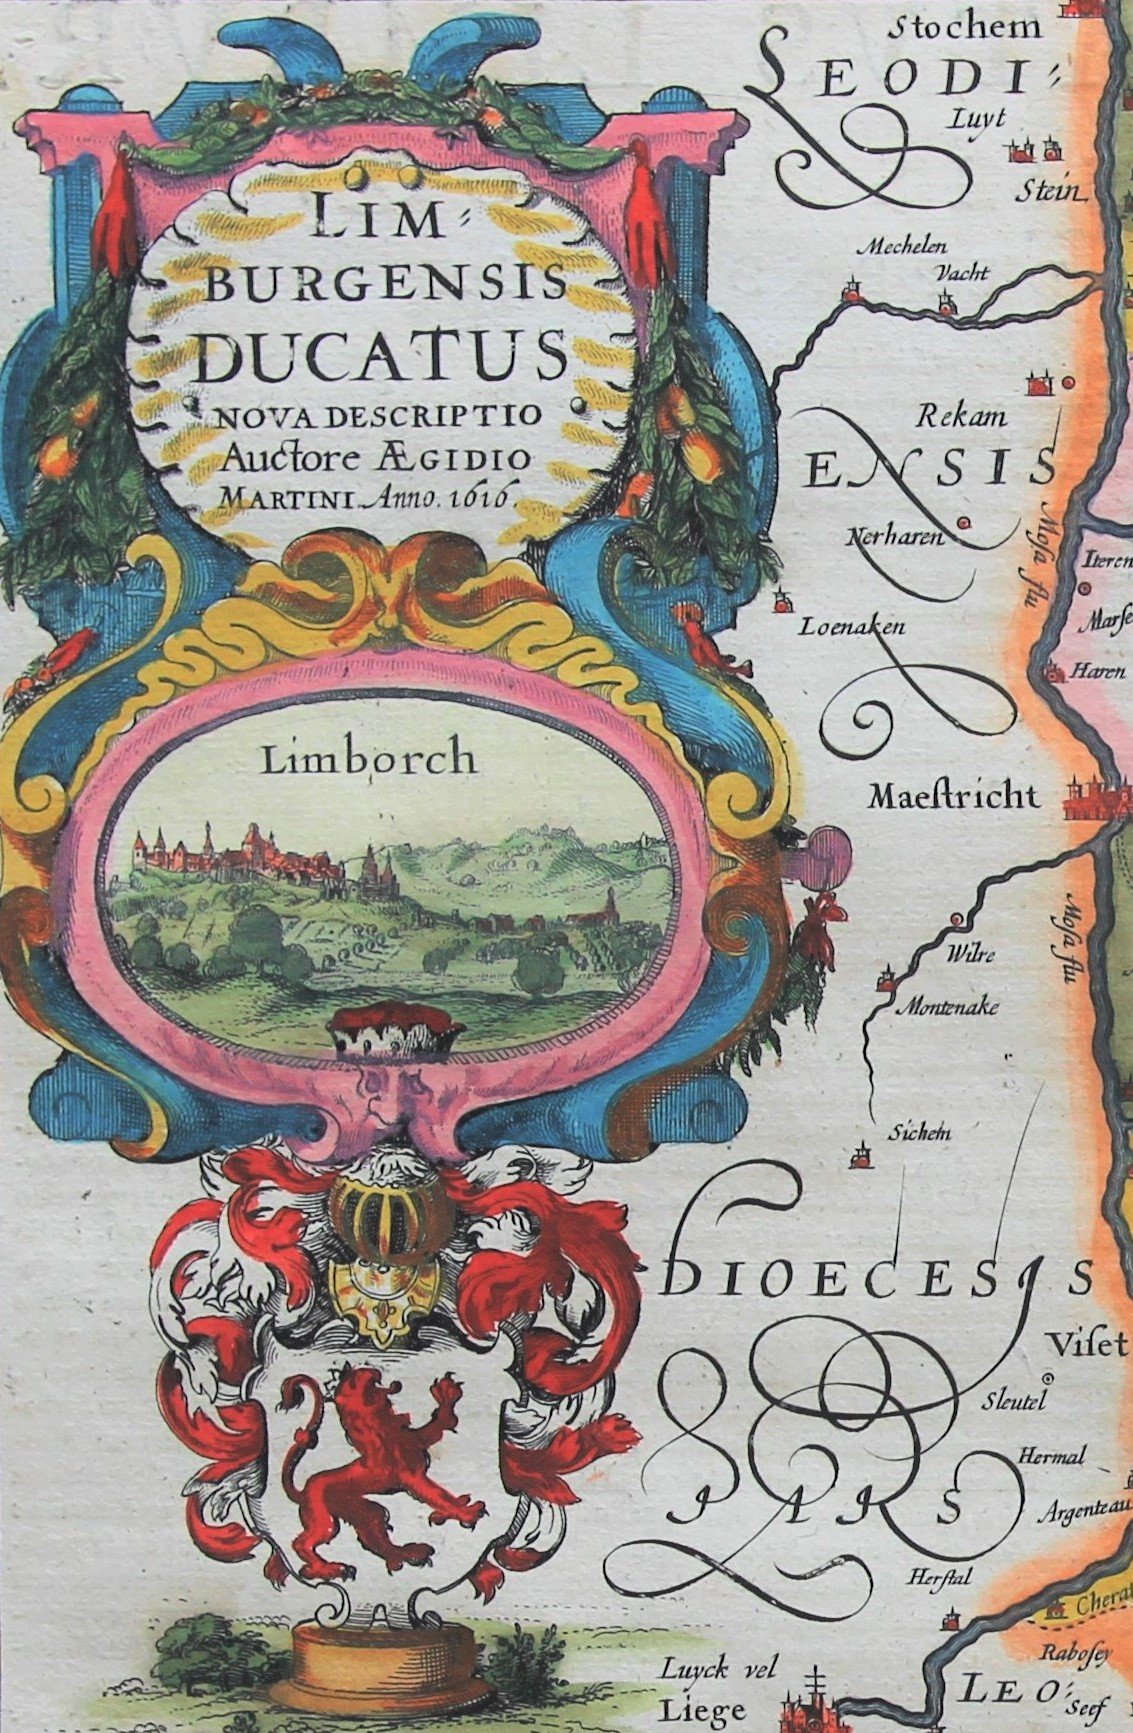 LIM-
BURGENSIS
DUCATUS
NOVA DESCRIPTIO
Auctore ÆGIDIO
MARTINI. Anno. 1616.
Limborch
Stochem
LEODI-
Luyt
Stein
Mechelen
Vacht
Rekam
ENSIS
Mosa flu
Nerharen
Iteren
Loenaken
Haren
Maeſtricht
Moſa flu
Wilre
Montenake
Sichem
DIOECESIS
Viſet
Sleutel
Hermal
PARS
Argenteau
Herſtal
Cherat
Raboſey
Luyck vel
Liege
LEO-
Seef